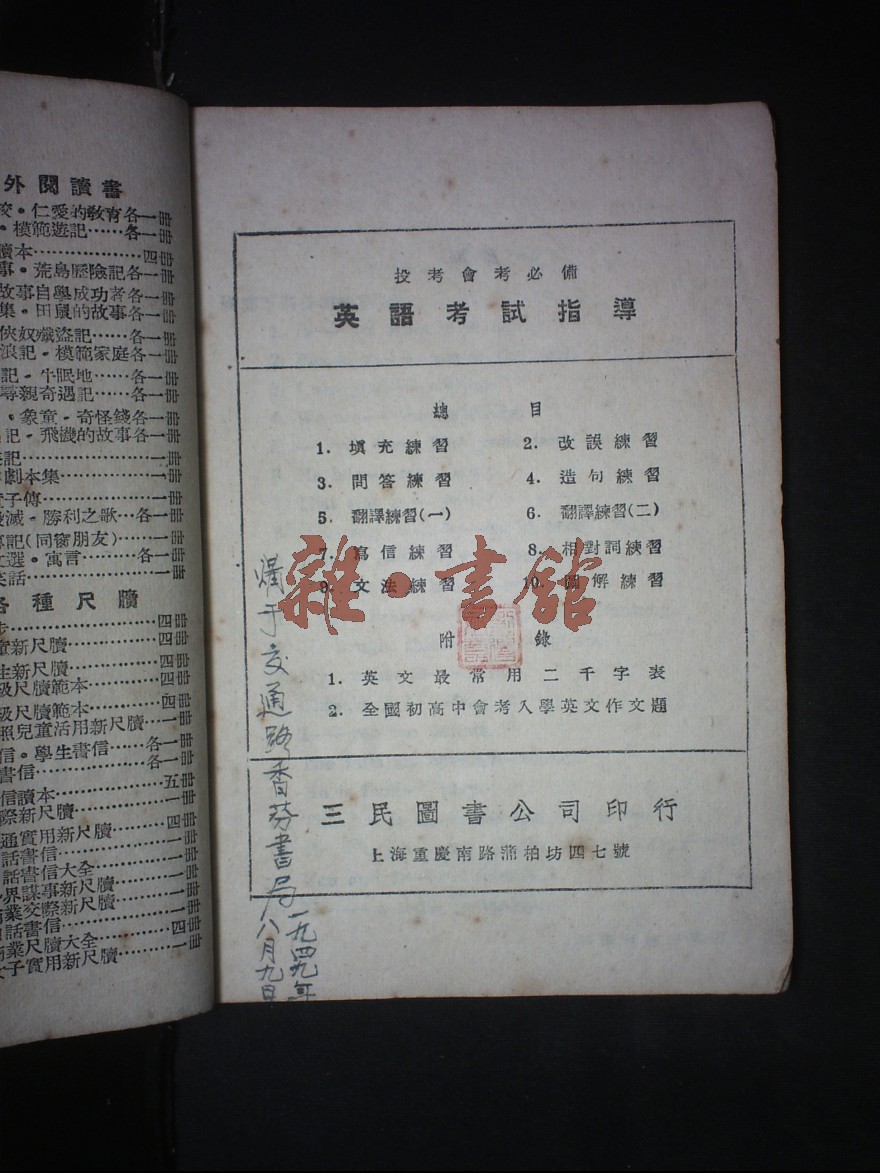 外閱讀書
仁愛的教育各一冊
模範遊記……各一冊
讀本…………………四冊
荒島歷險記各一冊
故事自學成功者各一冊
集·田鼠的故事各一冊
俠奴殲盜記……各一冊
浪記·模範家庭各一冊
記·牛眠地……各一冊
尋親奇遇記……各一冊
象童·奇怪錢各一冊
記·飛機的故事各一冊
記…………………一冊
劇本集……………一冊
子傳………………一冊
滅·勝利之歌…各一冊
記(同窗朋友)……一冊
文選·寓言……各一冊
笑話………………一冊
各種尺牘
步…………………四冊
童新尺牘…………四冊
生新尺牘…………四冊
級尺牘範本………四冊
級尺牘範本………四冊
照兒童活用新尺牘…一冊
信·學生書信……各一冊
書信………………各一冊
信讀本……………五冊
際新尺牘…………一冊
通實用新尺牘……四冊
話書信……………一冊
話書信大全………一冊
界謀事新尺牘……一冊
商業交際新尺牘…一冊
話書信……………一冊
商業尺牘大全……四冊
女子實用新尺牘…一冊
投考會考必備
英語考試指導
總目
1. 填充練習
2. 改誤練習
3. 問答練習
4. 造句練習
5. 翻譯練習(一)
6. 翻譯練習(二)
7. 寫信練習
8. 相對詞練習
9. 文法練習
10. 圖解練習
附錄
1. 英文最常用二千字表
2. 全國初高中會考入學英文作文題
三民圖書公司印行
上海重慶南路蒲柏坊四七號
購于交通路香芬書局
一九四九年
八月九日
雜·書館